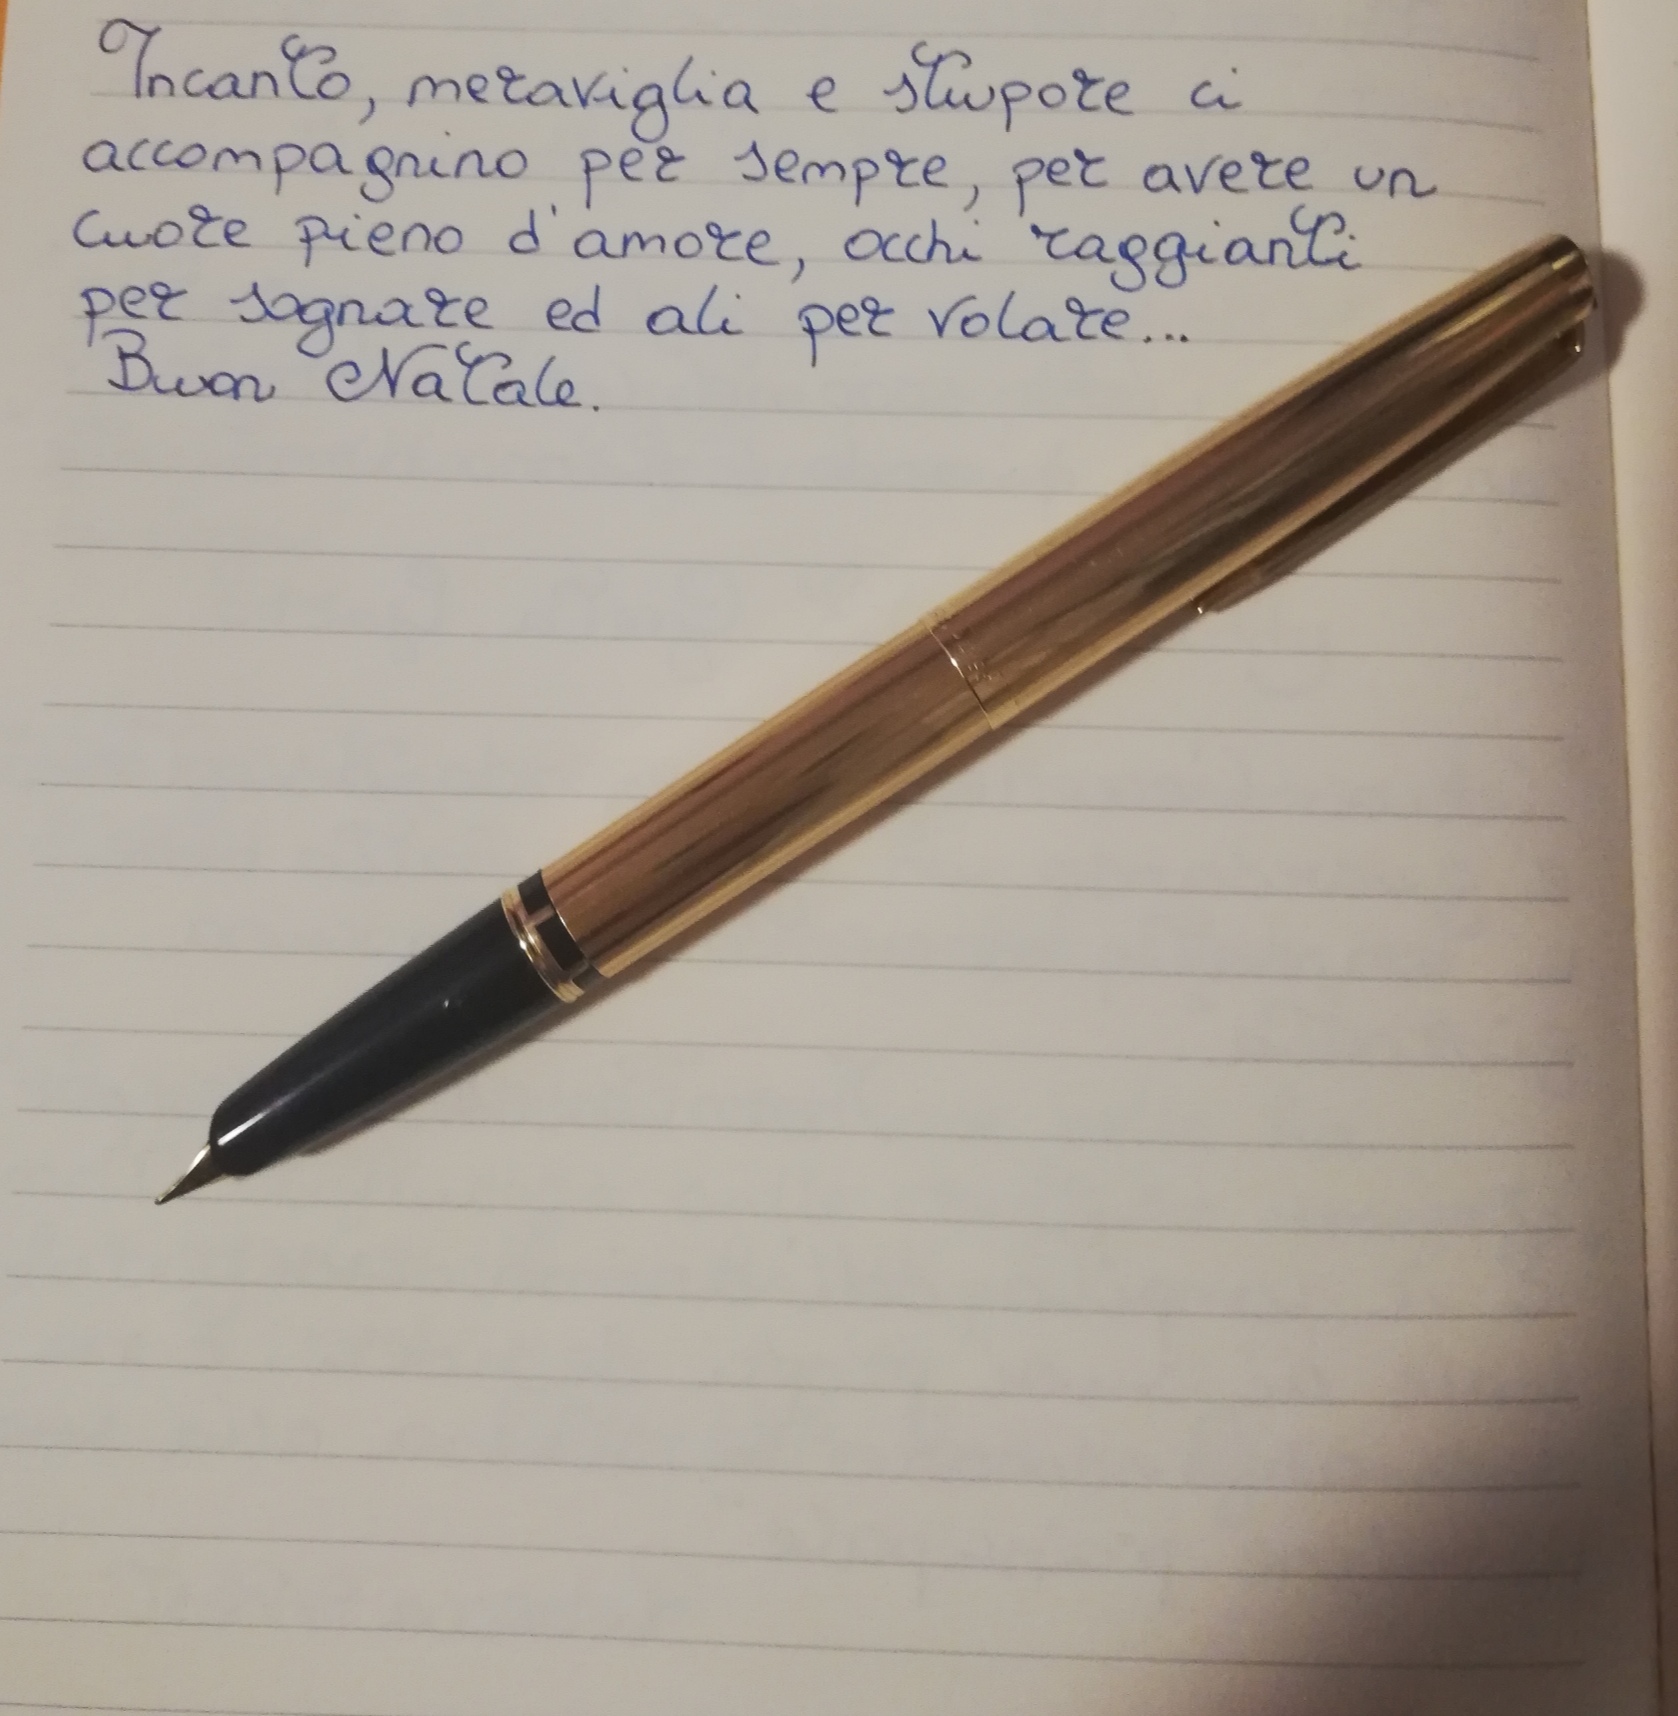 Incanto, meraviglia e stupore ci
accompagnino per sempre, per avere un
cuore pieno d'amore, occhi raggianti
per sognare ed ali per volare...
Buon Natale.